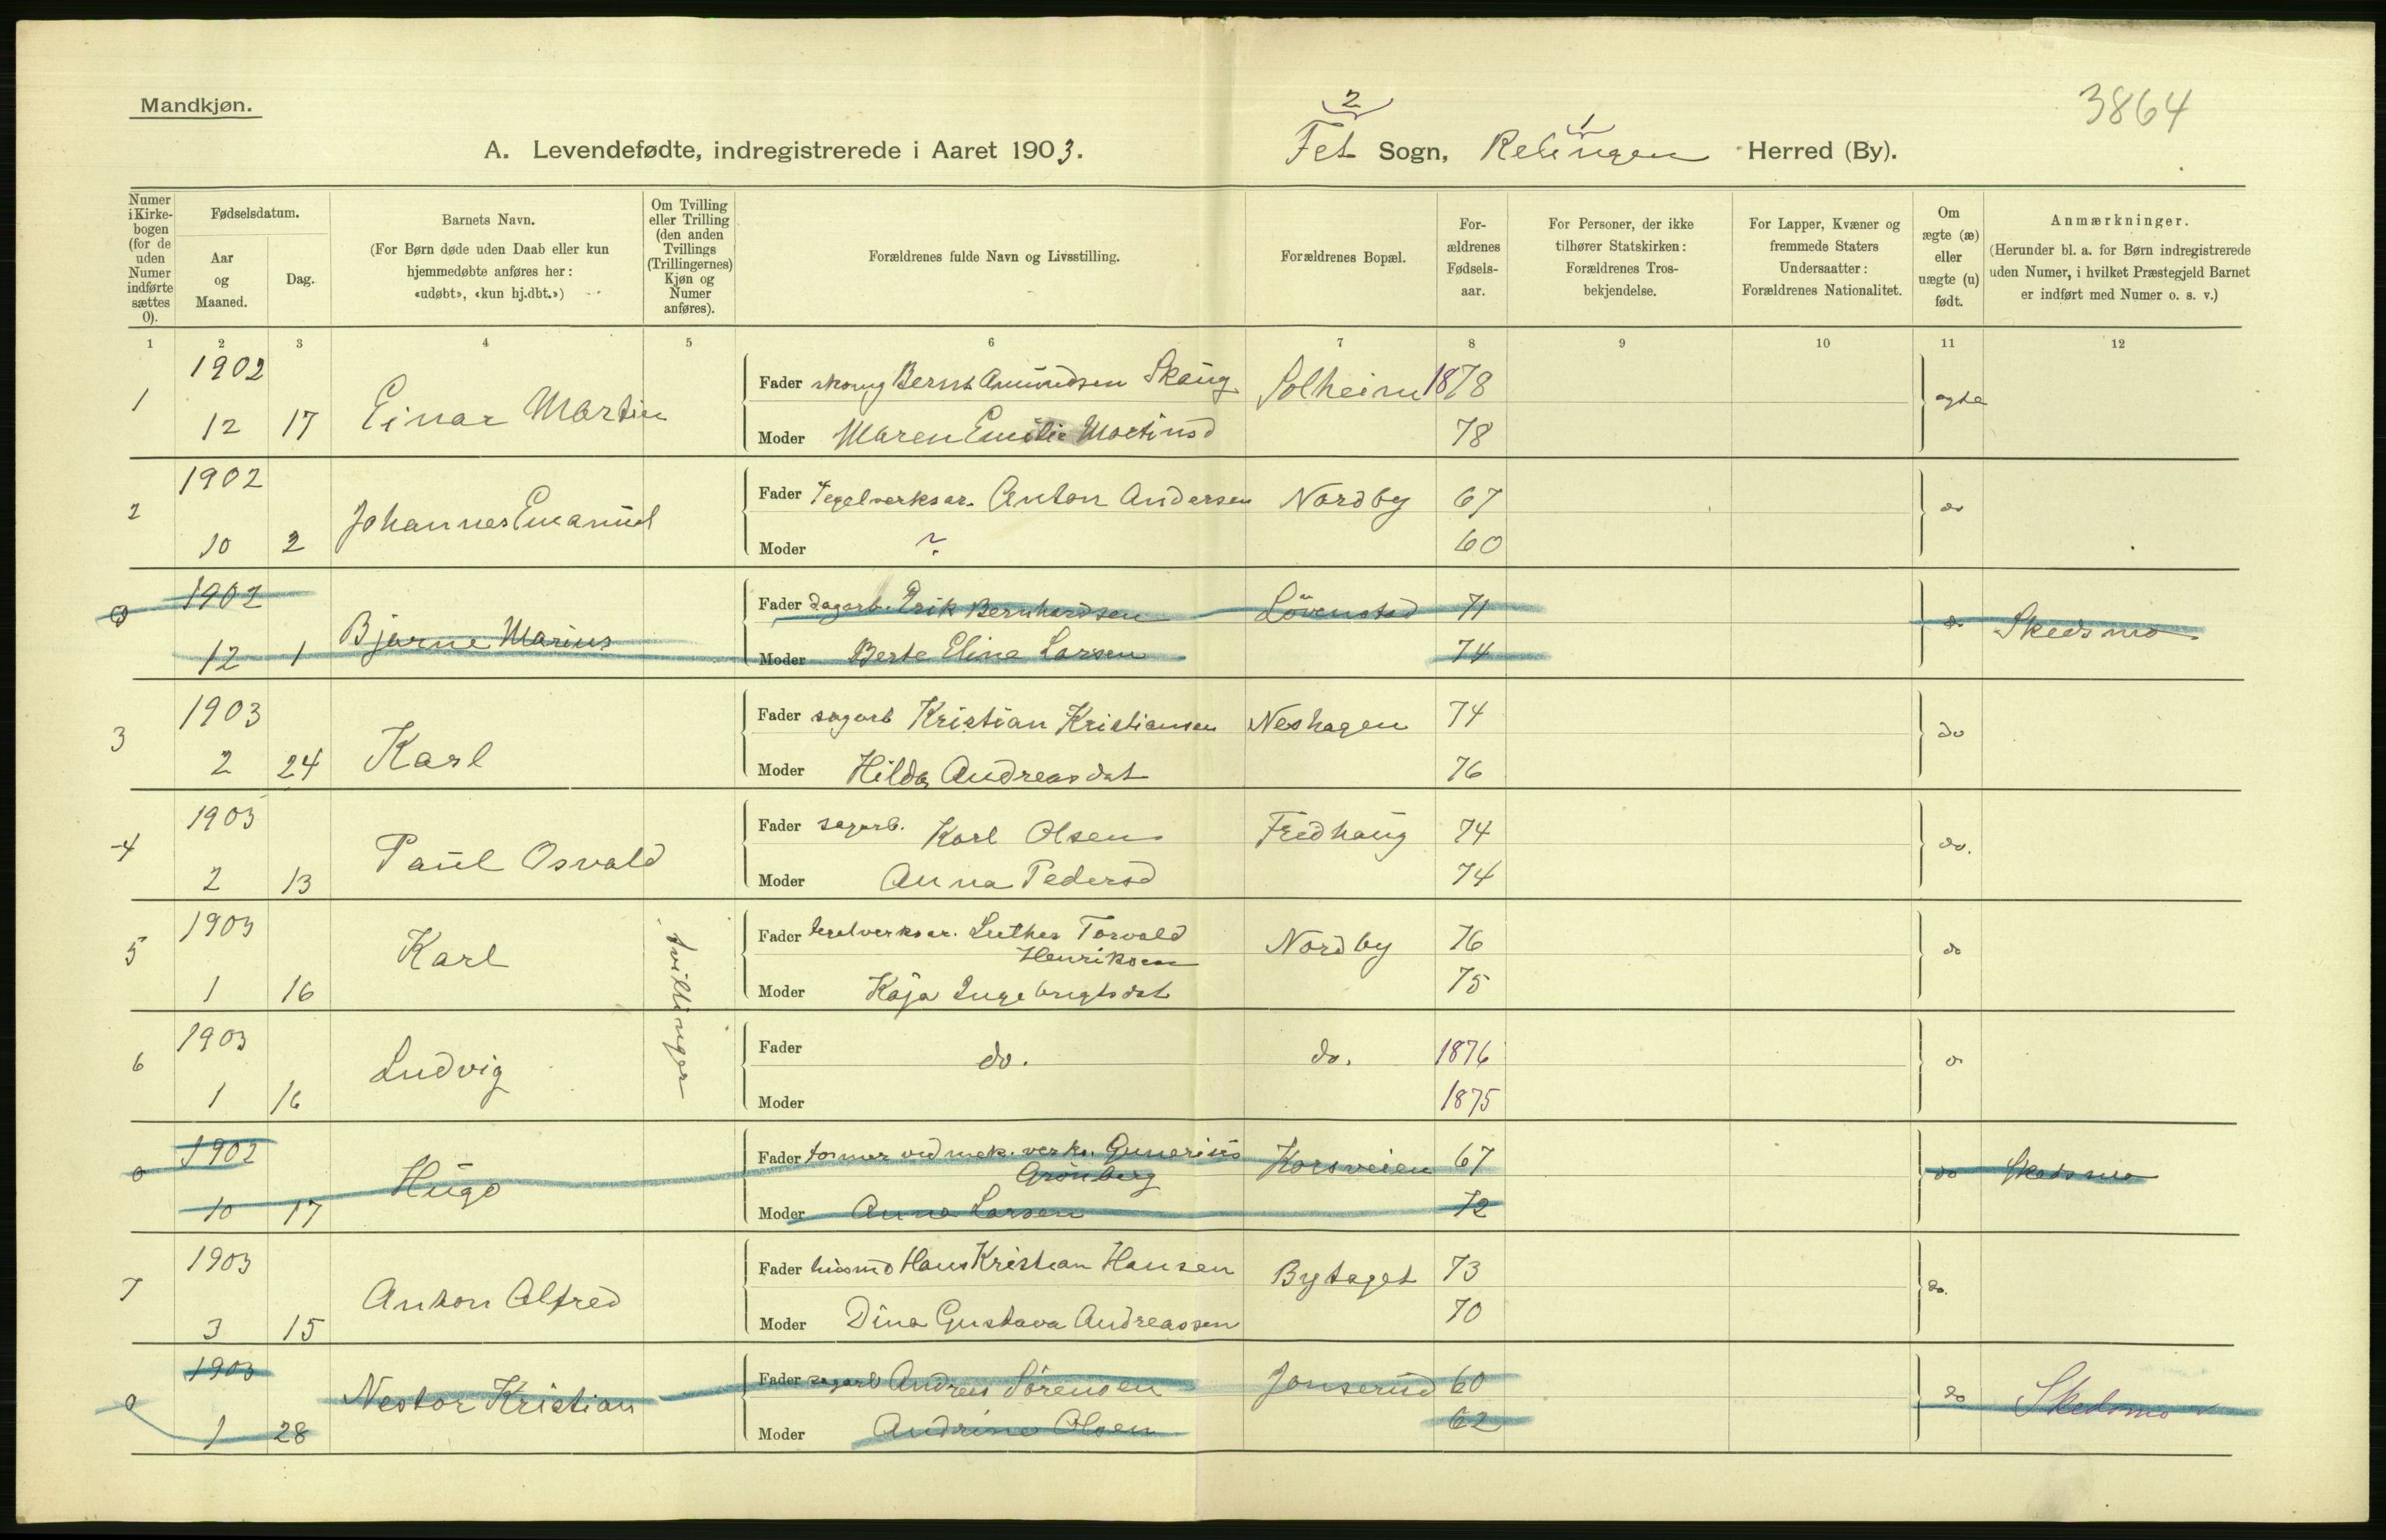 Mandkjøn.
3864
A. Levendefødte, indregistrerede i Aaret 1903.
2 1
Fet Sogn, Relingen Herred (By).
Numer i Kirke-bogen (for de uden Numer indførte sættes 0).
Fødselsdatum.
Aar og Maaned.
Dag.
Barnets Navn.
(For Børn døde uden Daab eller kun hjemmedøbte anføres her: «udøbt», «kun hj.dbt.»)
Om Tvilling eller Trilling (den anden Tvillings (Trillingernes) Kjøn og Numer anføres).
Forældrenes fulde Navn og Livsstilling.
Forældrenes Bopæl.
For-ældrenes Fødsels-aar.
For Personer, der ikke tilhører Statskirken: Forældrenes Tros-bekjendelse.
For Lapper, Kvæner og fremmede Staters Undersaatter: Forældrenes Nationalitet.
Om ægte (æ) eller uægte (u) født.
Anmærkninger.
(Herunder bl. a. for Børn indregistrerede uden Numer, i hvilket Præstegjeld Barnet er indført med Numer o. s. v.)
1 2 3 4 5 6 7 8 9 10 11 12
1 1902 12 17 Einar Martin
Fader Bernt Amundsen Skaug Solheim 1878 ægte
Moder Maren Emilie Martinsd 78
2 1902 10 2 Johannes Emanuel
Fader Tegelverksar. Anton Andersen Nordby 67 do
Moder ? 60
0 1902 12 1 Bjarne Marius
Fader dagarb. Erik Bernhardsen Lövenstad 71 do Skedsmo
Moder Berte Eline Larsen 74
3 1903 2 24 Karl
Fader sagarb Kristian Kristiansen Neshagen 74 do
Moder Hilda Andreasdat 76
4 1903 2 13 Paul Osvald
Fader sagarb. Karl Olsen Fredhaug 74 do.
Moder Anna Pedersd 74
5 1903 1 16 Karl tvillinger
Fader tegelverksar. Luther Torvald Henriksen Nordby 76 do
Moder Kaja Ingebrigtsdat 75
6 1903 1 16 Ludvig
Fader do. do. 1876 do
Moder 1875
0 1902 10 17 Hugo
Fader former ved mek. verks. Gunerius Grönberg Korsveien 67 do Skedsmo
Moder Anna Larsen 72
7 1903 3 15 Anton Alfred
Fader husmd Hans Kristian Hansen Bytaget 73 do.
Moder Dina Gustava Andreassen 70
0 1903 1 28 Nestor Kristian
Fader sagarb Andreas Sörensen Jonserud 60 do Skedsmo
Moder Andrine Olsen 62